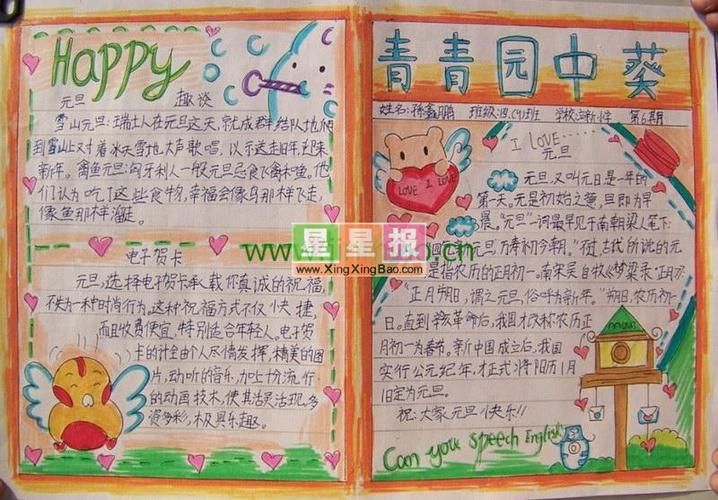 Happy
元旦 趣谈
雪山元旦:瑞士人在元旦这天,就成群结队地爬
到雪山上对着冰天雪地,大声歌唱,以示送走旧年,迎来
新年。禽鱼元旦:匈牙利人一般元旦忌食飞禽和鱼。他
们认为吃了这些食物,幸福会像鸟那样飞走,
像鱼那样溜走。
电子贺卡
元旦,选择电子贺卡承载你真诚的祝福,
不失为一种时尚行为。这种祝福方式不仅快捷,
而且收费便宜,特别适合年轻人。电子贺
卡的计全由个人尽情发挥,精美的图
片,动听的音乐,加上扮流行
的动画技术,使其活灵活现,多
姿多彩,极具乐趣。
青青园中葵
姓名:陈鑫鹏 班级:四.(4)班 学校: 小学 第6期
I LOVE……
元旦
LOVE I LOVE
元旦,又叫元日是一年的
第一天。元是初始之意,旦即为早
晨。"元旦"一词最早见于南朝梁人笔下:
"四 元旦,万寿初今朝。"不过,古代所说的元
是指农历的正月初一。南宋吴自牧《梦梁录》正月:
"正月朔日,谓之元旦,俗呼为新年。"朔日,农历初一
日。直到辛亥革命后,我国才改称农历正
月初一为春节。新中国成立后,我国
实行公元纪年,才正式将阳历1月
1日定为元旦。
祝:大家元旦快乐!!
Can you speech English
www. .cn
星星报
www.XingXingBao.com